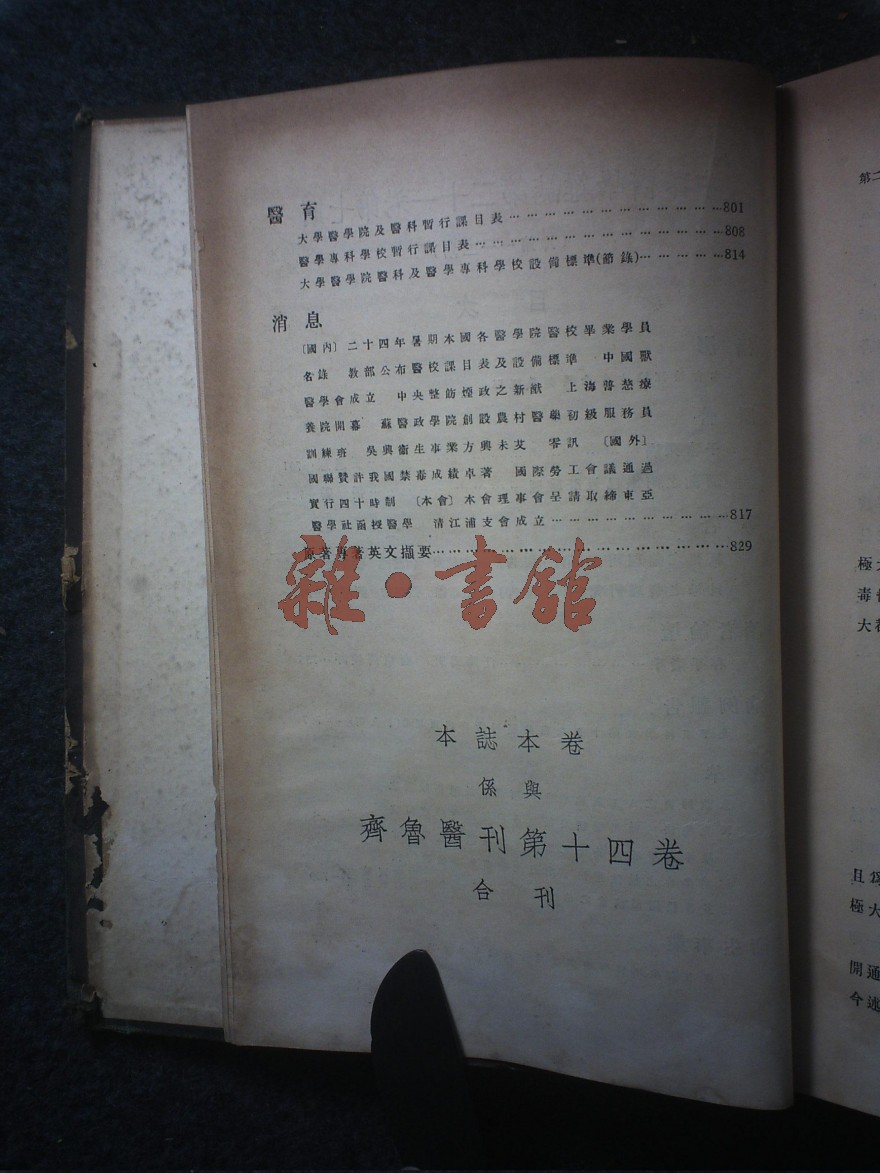 醫育
大學醫學院及醫科暫行課目表…………………………801
醫學專科學校暫行課目表…………………………808
大學醫學院醫科及醫學專科學校設備標準(節錄)…………814
消息
〔國內〕二十四年暑期本國各醫學院醫校畢業學員
名錄 教部公布醫校課目表及設備標準 中國獸
醫學會成立 中央整飭煙政之新猷 上海普慈療
養院開幕 蘇醫政學院創設農村醫藥初級服務員
訓練班 吳興衞生事業方興未艾 零訊 〔國外〕
國聯贊許我國禁毒成績卓著 國際勞工會議通過
實行四十時制 〔本會〕本會理事會呈請取締東亞
醫學社函授醫學 清江浦支會成立…………………………817
原著專著英文擷要…………………………829
雜·書館
本誌本卷
係與
齊魯醫刊第十四卷
合刊
第二
極大
毒
大
且爲
極大
開通
今述